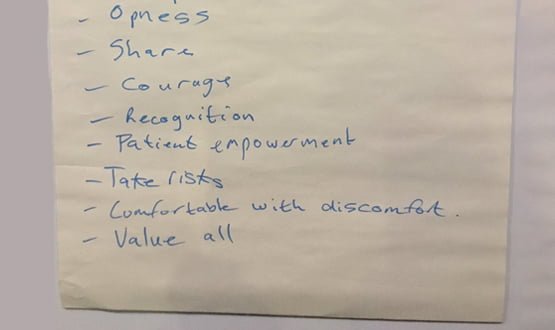 - Opness
- Share
- Courage
- Recognition
- Patient empowerment
- Take risks
- Comfortable with discomfort.
- Value all